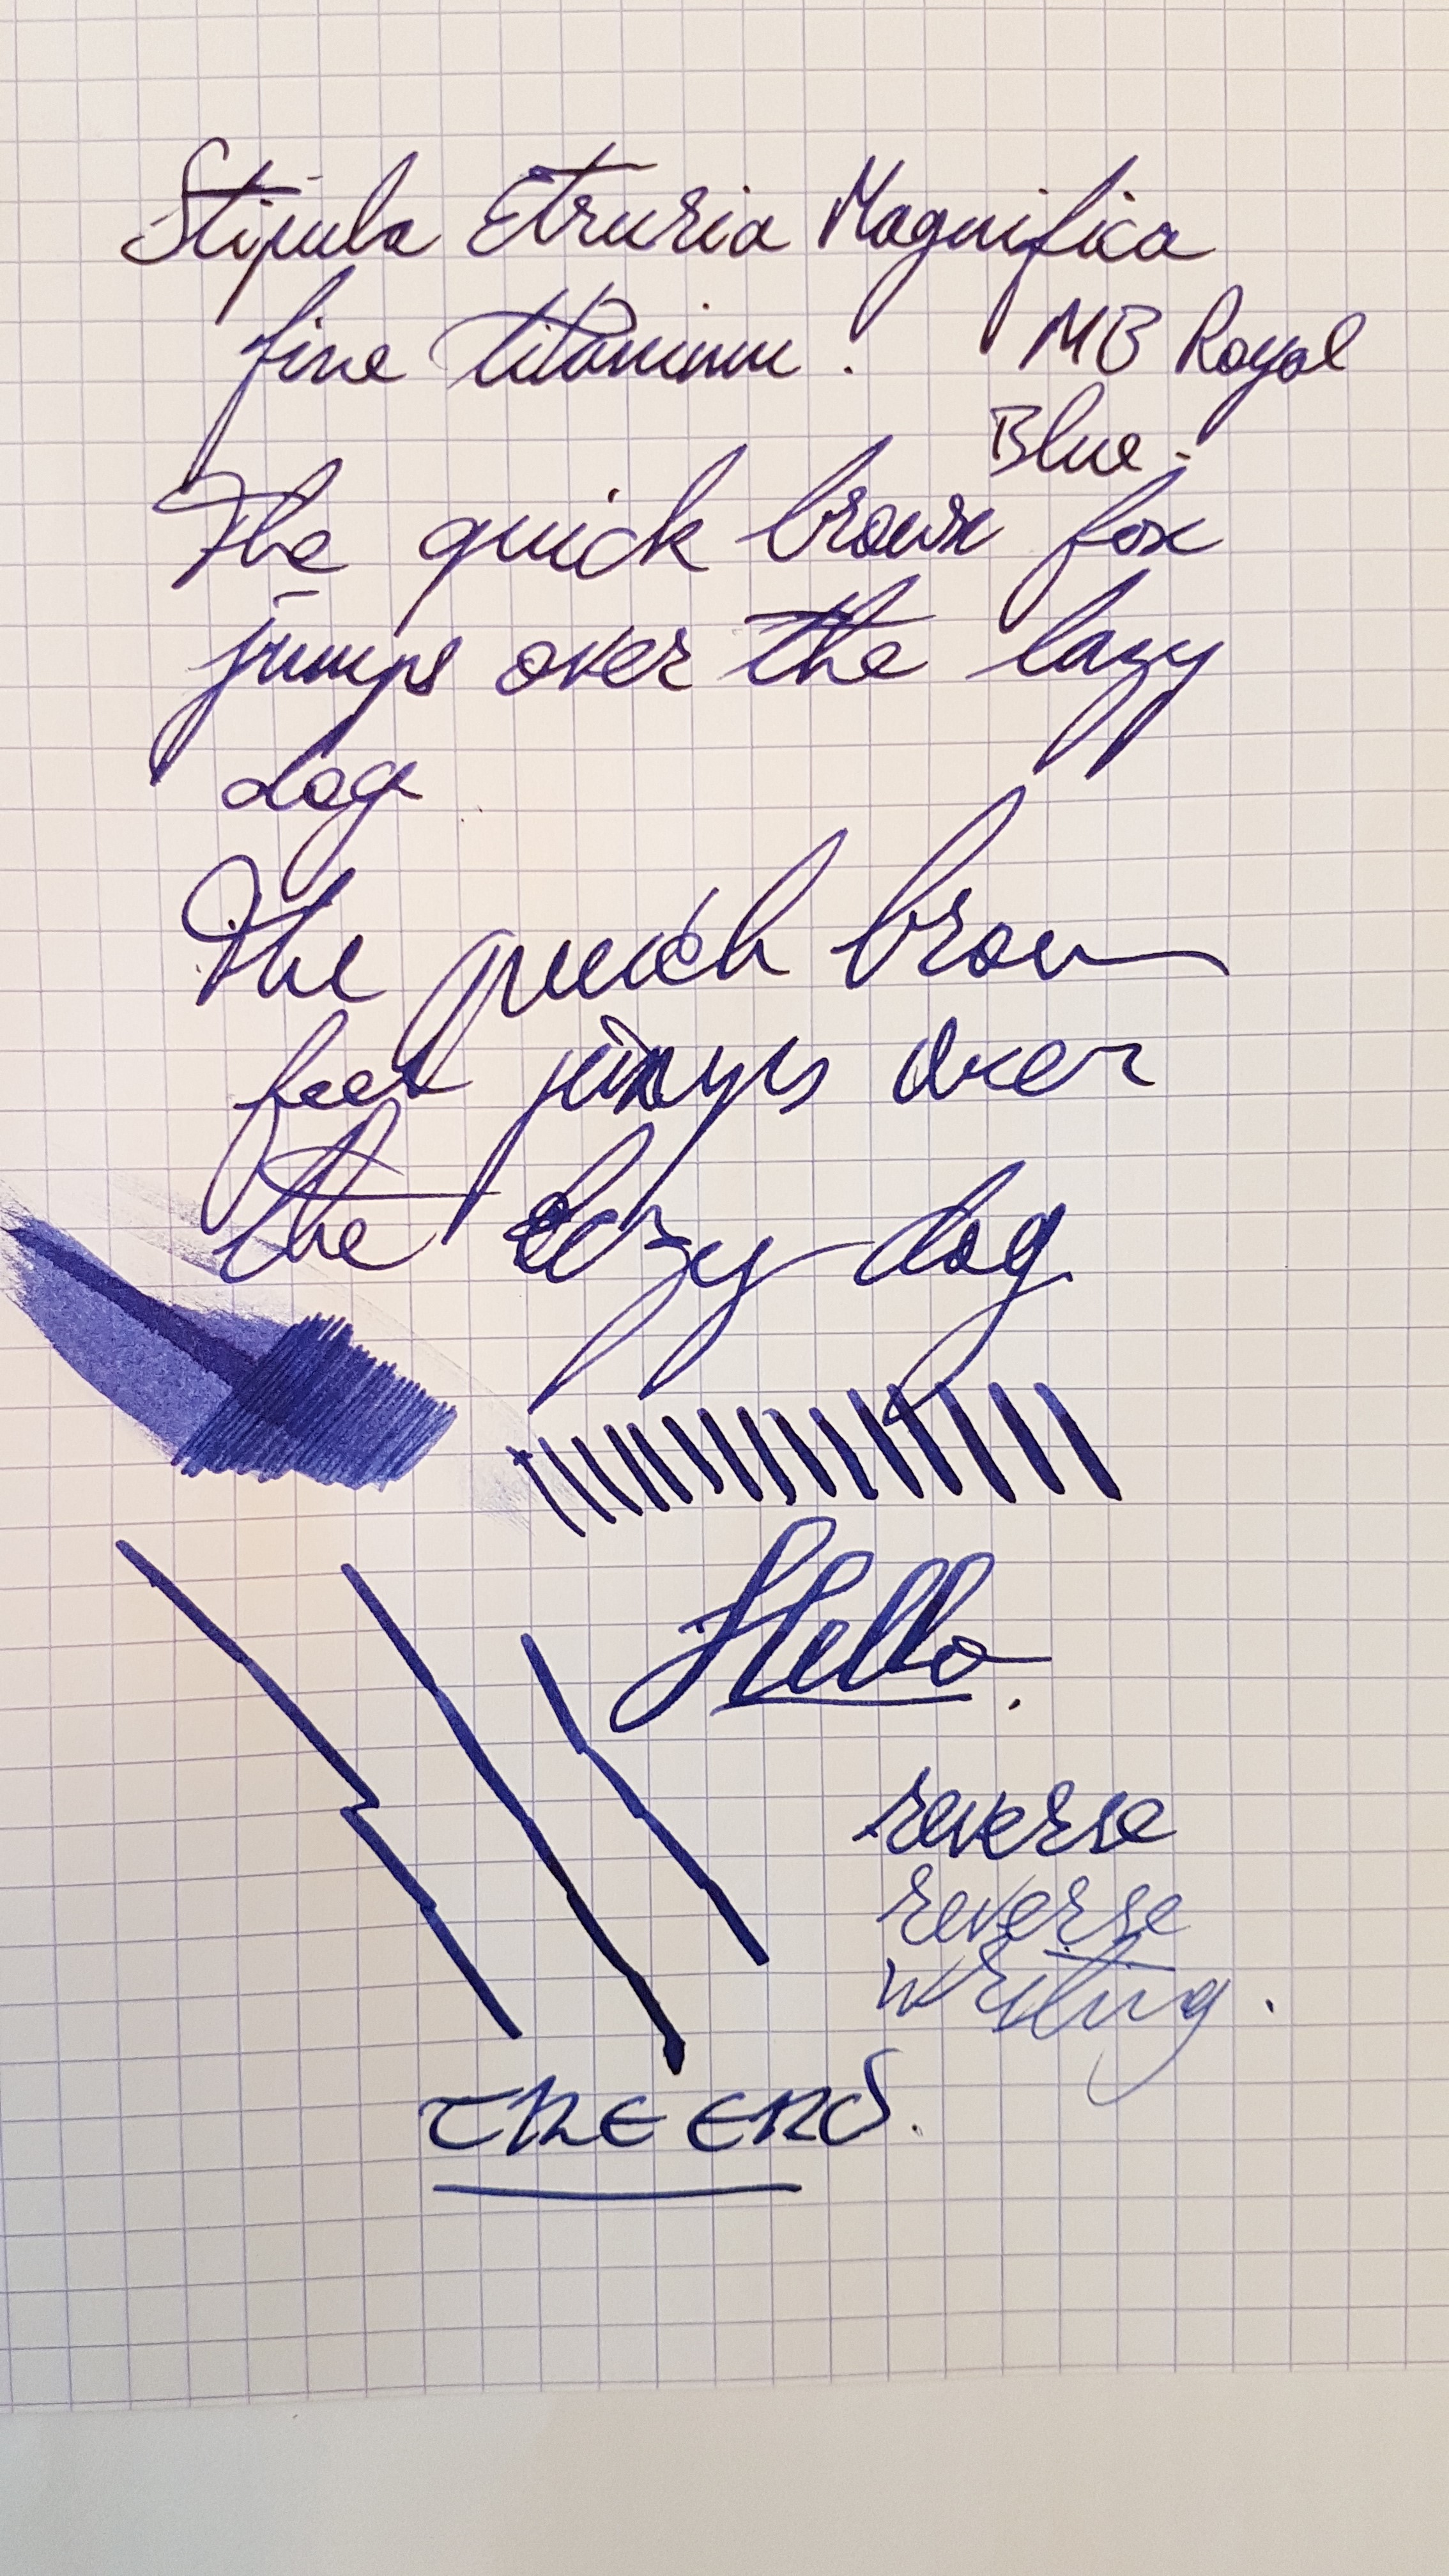 Stipula Etruria Magnifica
fine titanium. MB Royal
Blue.
The quick brown fox
jumps over the lazy
dog
The quick brown
jumps over
the lazy dog
Hello.
reverse
reverse
writing.
THE END.